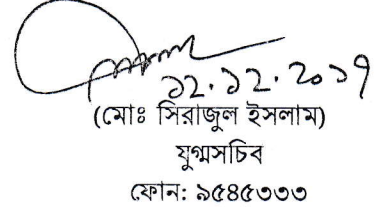 ১২.১২.২০১৭
(মোঃ সিরাজুল ইসলাম)
যুগ্মসচিব
ফোন: ৯৫৪৫৩৩৩